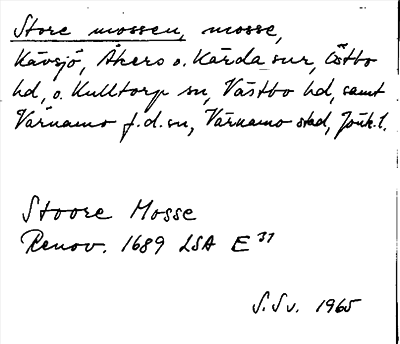 Store mossen, mosse,
Kävsjö, Åkers o. Kärda snr, Östbo
hd, o. Kulltorp sn, Västbo hd, samt
Värnamo f.d. sn, Värnamo stad, Jönk. l.
Stoore Mosse
Renov. 1689 LSA E 31
S. Sv. 1965